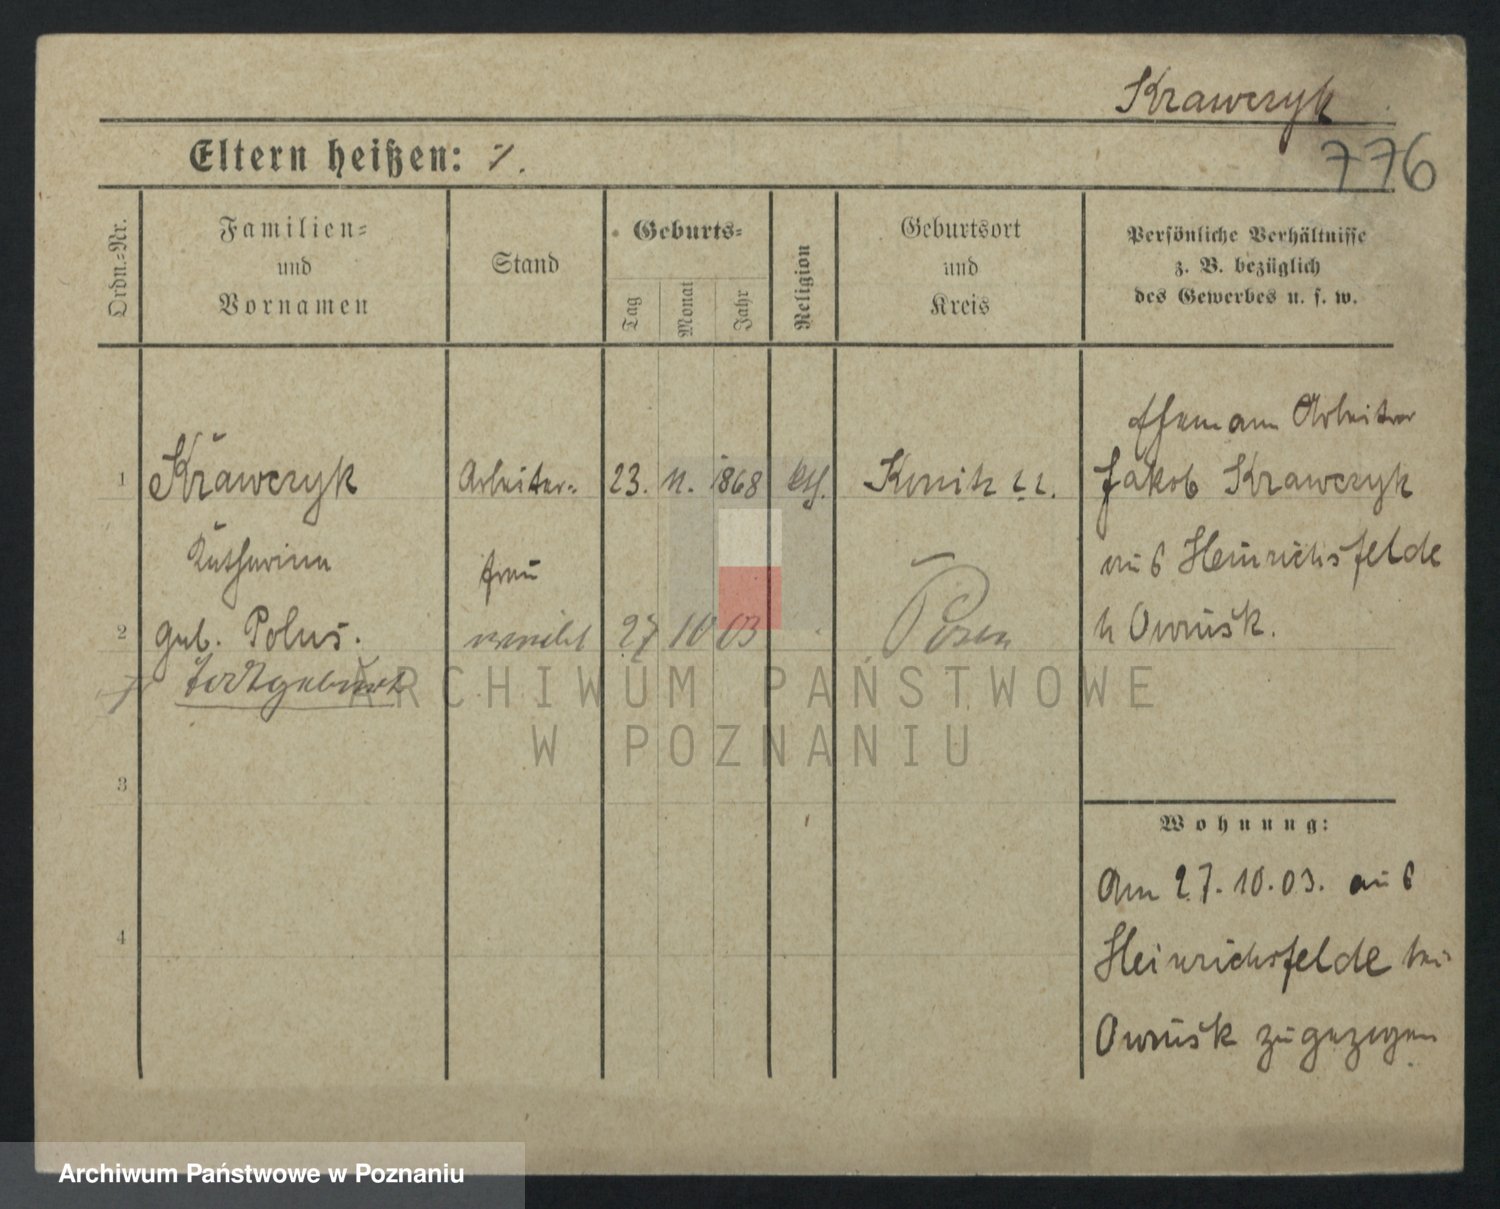 Krawczyk
776
Eltern heißen: ·/.
Ordn.=Nr.
Familien=
und
Vornamen
Stand
Geburts=
Tag
Monat
Jahr
Religion
Geburtsort
und
Kreis
Persönliche Verhältnisse
z. B. bezüglich
des Gewerbes u. s. w.
1 Krawczyk Arbeiter= 23. 11. 1868 kth.
Katharina frau
2 geb. Polus. weibl 27 10 03 Posen
Todtgeburt
3
4
Ehemann Arbeiter
Jakob Krawczyk
aus Heinrichsfelde
b Owinsk.
Wohnung:
Am 27.10.03. aus
Heinrichsfelde bei
Owinsk zugezogen
ARCHIWUM PAŃSTWOWE
W POZNANIU
Archiwum Państwowe w Poznaniu